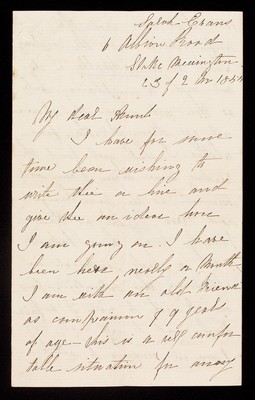 Sarah Evans
6 Albion Road
Stoke Newington
My dear Aunt
I have for some
time been wishing to
write thee a line and
give thee an idea how
I am going on. I have
been here nearly a Month
I am with an old Friend
as companion 79 years
of age - this is a very comfor
table situation for many